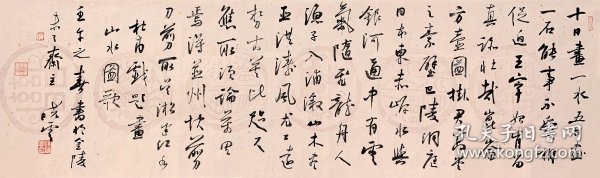 十日畫一水五日畫
一石能事不受相
促迫王宰始肯留
真跡壯哉崑崙
方壺圖掛君高堂
之素壁巴陵洞庭
日本東赤岸水與
銀河通中有雲
氣隨飛龍舟人
漁子入浦漵山木盡
亞洪濤風尤工遠
勢古莫比咫尺
應須論萬里
焉得并州快剪
刀剪取吳淞半江水
杜甫戲題畫
山水圖歌
壬午之春書於金陵
齋主